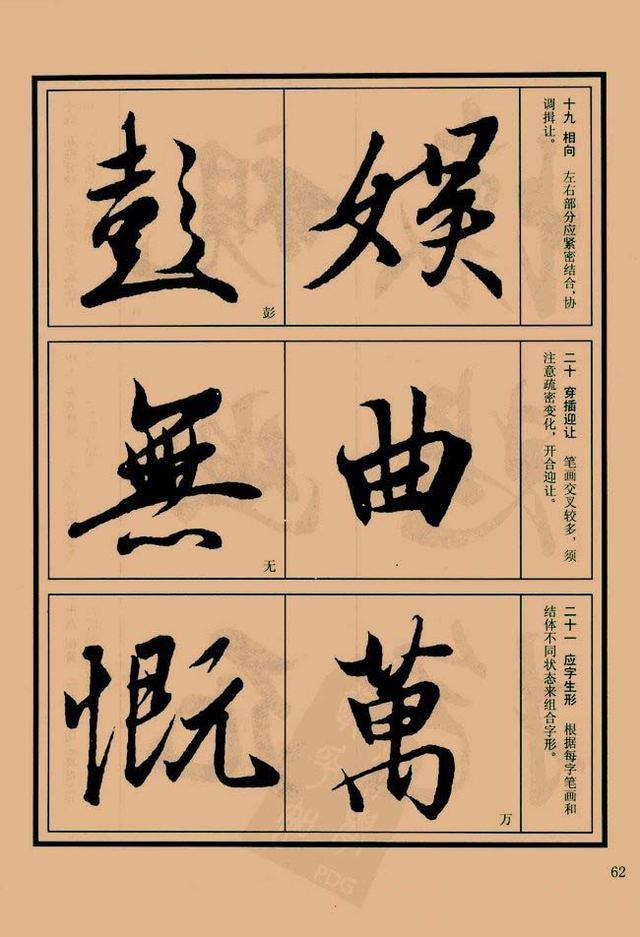 十九 相向 左右部分应紧密结合，协
调揖让。
娱
彭
彭
二十 穿插迎让 笔画交叉较多，须
注意疏密变化，开合迎让。
曲
無
无
二十一 应字生形 根据每字笔画和
结体不同状态来组合字形。
萬
万
慨
62
PDG